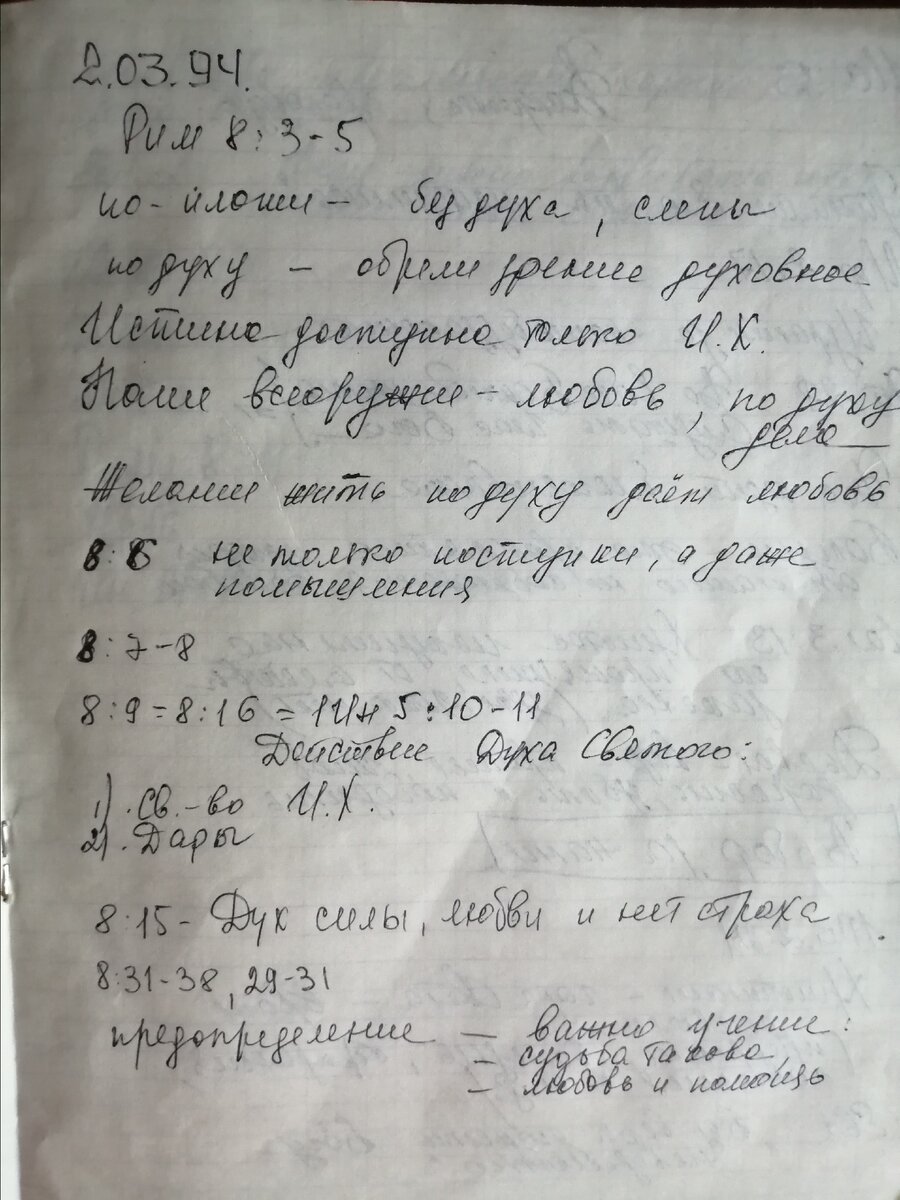 2.03.94.
Рим 8:3-5
по-плоти – без духа, слепы
по духу – обрели зрение духовное
Истина доступна только И.Х.
Наше всеоружие – любовь, по духу
дела
Желание жить по духу даёт любовь
8:6 не только поступки, а даже
помышления
8:7-8
8:9 = 8:16 = 1Ин 5:10-11
Действие Духа Святого:
1). Св.-во И.Х.
2). Дары
8:15 - Дух силы, любви и нет страха
8:31-38, 29-31
предопределение – важно учение:
– судьба такова
– любовь и помощь